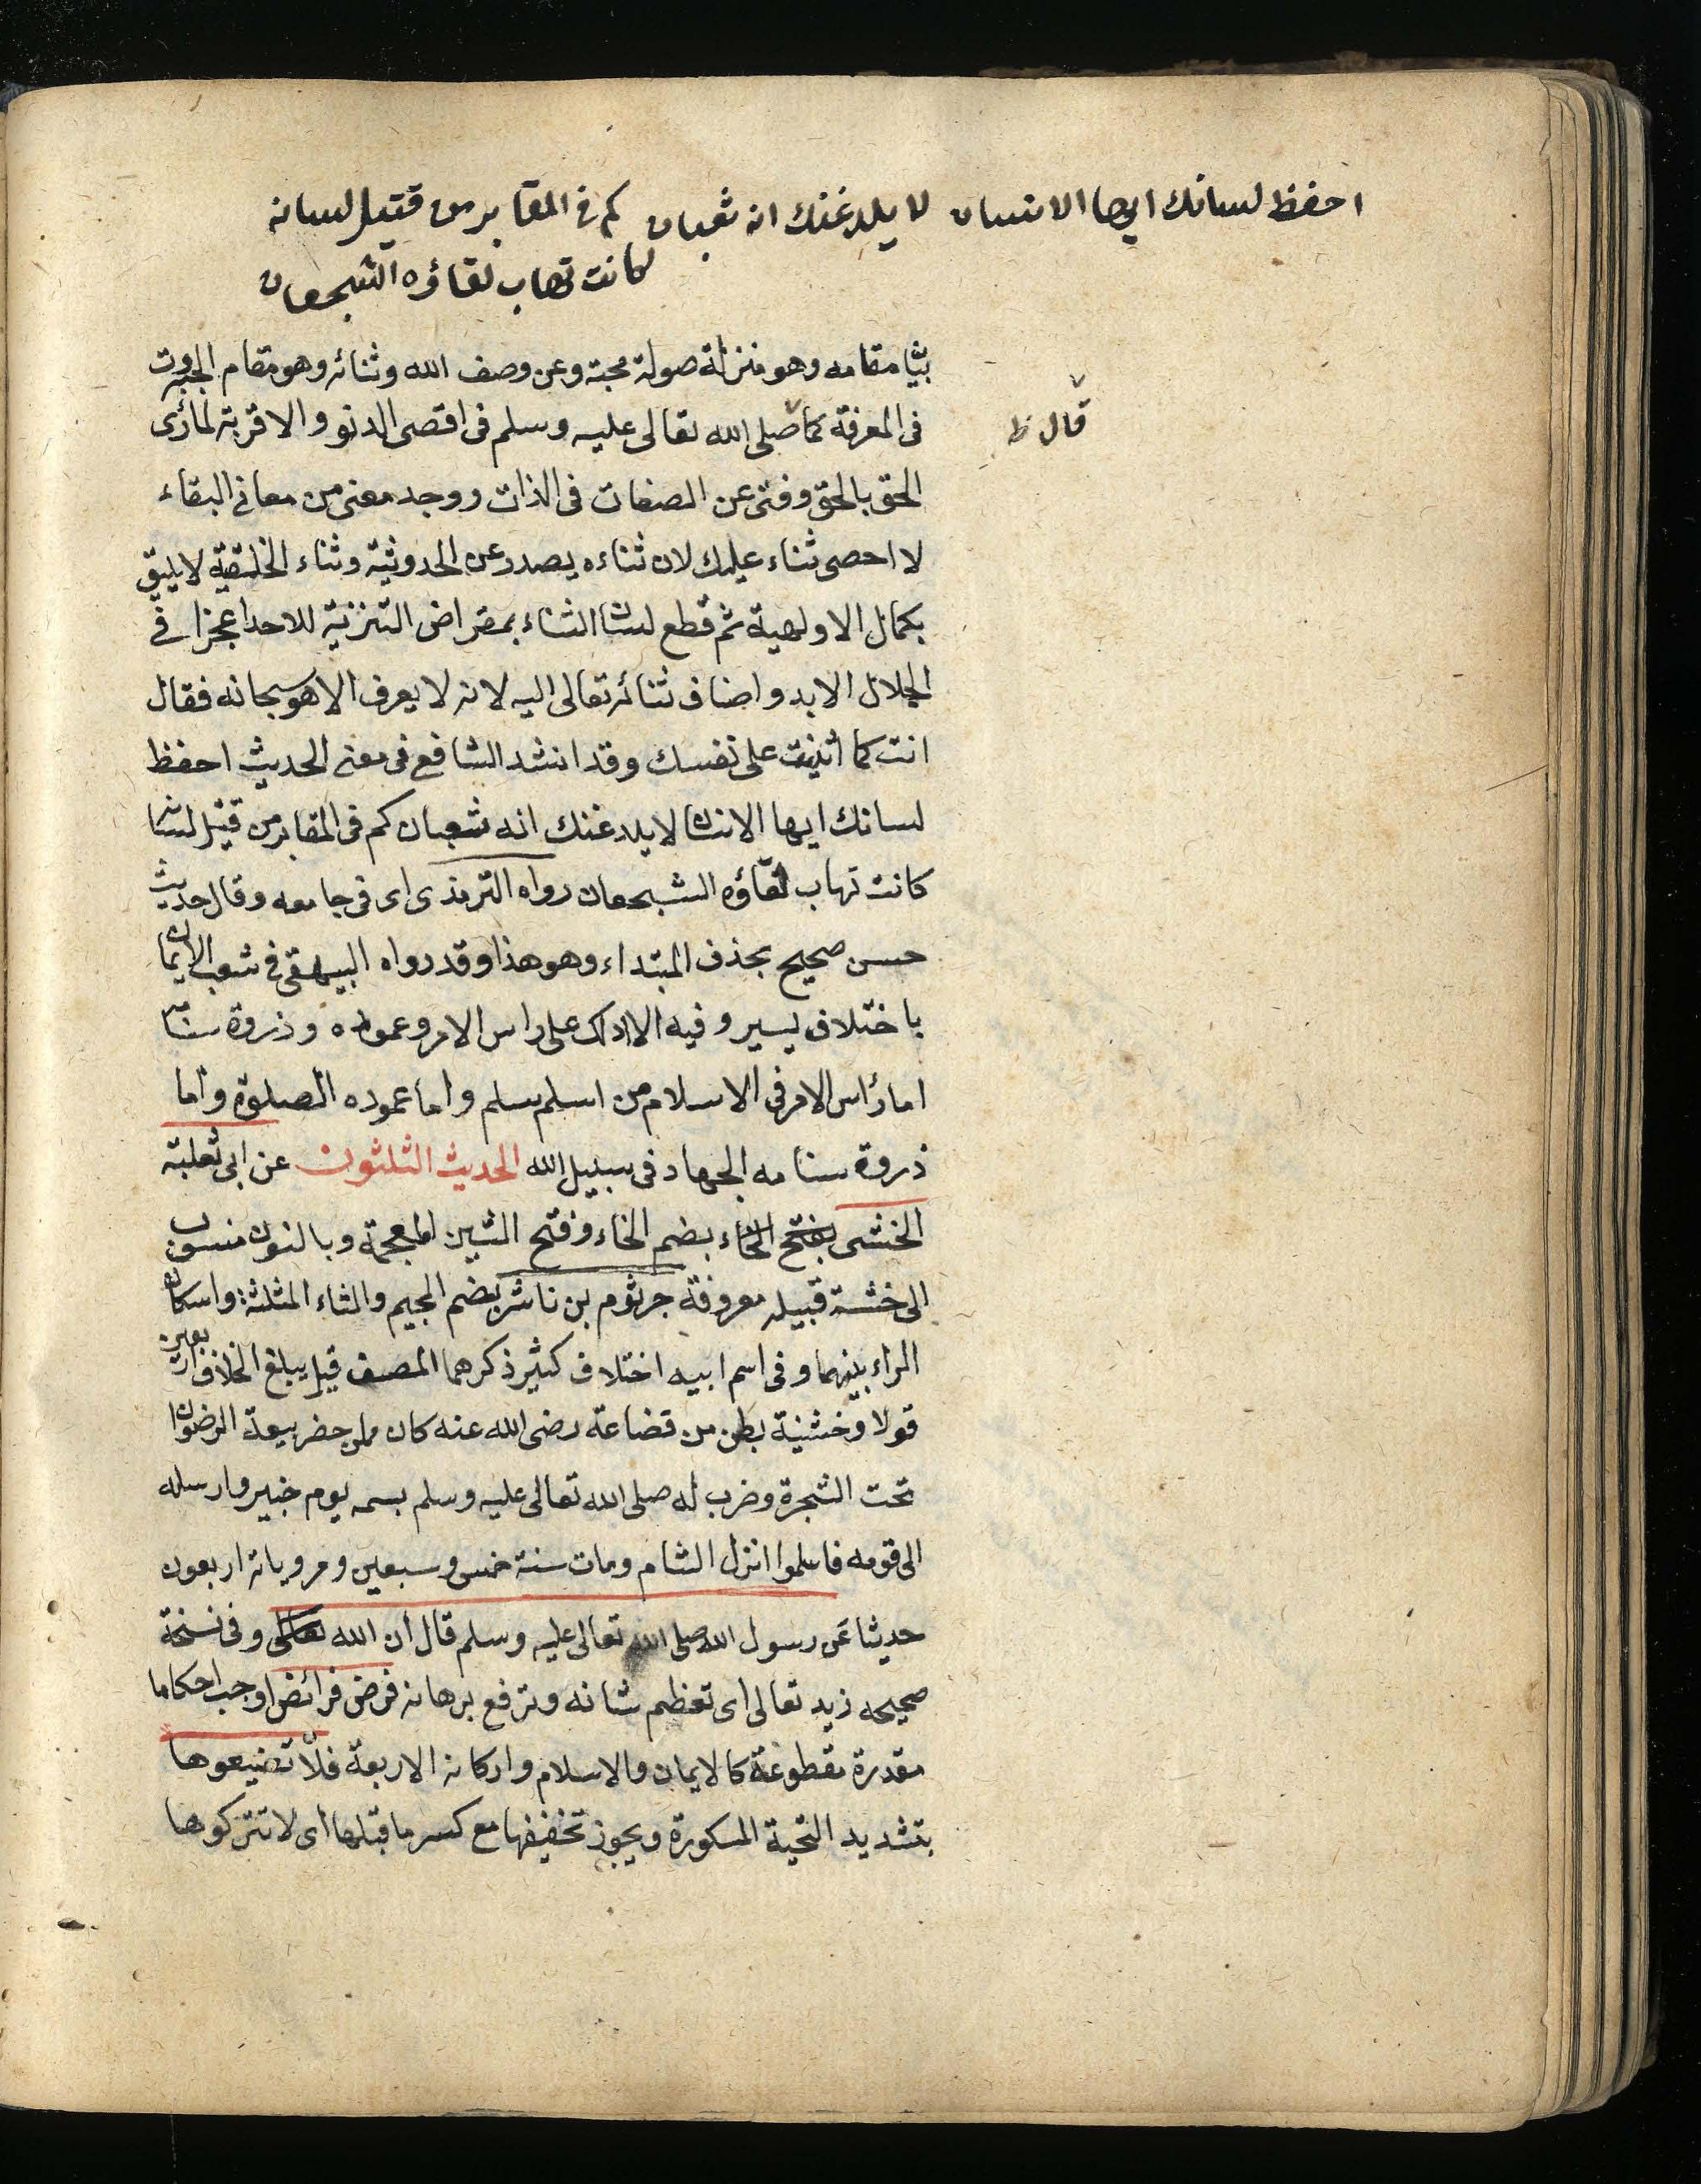 احفظ لسانك ايها الانسان لا يلدغنك انه ثعبان كم في المقابر من قتيل لسانه
كانت تهاب لقاؤه الشجعان
مقامه وهو منزلة صولة محبة وعن وصف الله وثنائه وهو مقام الجبروت
قال ظ
في المعرفة كما صلى الله تعالى عليه وسلم في اقصى الدنو والاقربة لما رأى
الحق بالحق وفنى عن الصفات في الذات ووجد معنى من معاني البقاء
لا احصى ثناء عليك لان ثناءه يصدر عن الحدوثية وثناء الخليقة لا يليق
بكمال الاولهية ثم قطع لسان الثناء بمقراض التنزيه للاحد اعجزا في
الجلال الابد واضاف ثنائه تعالى اليه لانه لا يعرف الا هو سبحانه فقال
انت كما اثنيت على نفسك وقد انشد الشافع في معنى الحديث احفظ
لسانك ايها الانسان لا يلدغنك انه ثعبان كم في المقابر من قتيل لسانه
كانت تهاب لقاؤه الشجعان رواه الترمذى اى في جامعه وقال حديث
حسن صحيح بحذف المبتداء وهو هذا وقد رواه البيهقى في شعب الايمان
باختلاف يسير وفيه الا ادلك على راس الامر وعموده وذروة سنامه
اما رأس الامر في الاسلام من اسلم سلم واما عموده الصلوة واما
ذروة سنامه الجهاد في سبيل الله الحديث الثلثون عن ابى ثعلبة
الخشنى بفتح الخاء بضم الخاء وفتح الشين المعجمة وبالنون منسوب
الى خشنة قبيله معروفة جرثوم بن ناشر بضم الجيم والثاء المثلثة واسكان
الراء بينهما وفى اسم ابيه اختلاف كثير ذكرهما المصنف قيل يبلغ الخلاف اربعين
قولا وخشنية بطن من قضاعة رضى الله عنه كان ممن حضر بيعة الرضوان
تحت الشجرة وضرب له صلى الله تعالى عليه وسلم بسهمه يوم خيبر وارسله
الى قومه فاسلموا انزل الشام ومات سنة خمس وسبعين ومروياته اربعون
حديثا عن رسول الله صلى الله تعالى عليه وسلم قال ان الله تعالى وفى نسخة
صحيحه زيد تعالى اى تعظم شانه وترفع برهانه فرض فرائض اوجب احكاما
مقدرة مقطوعة كالايمان والاسلام واركانه الاربعة فلا تضيعوها
بتشديد التحية المكسورة ويجوز تخفيفها مع كسر ما قبلها اى لا تتركوها